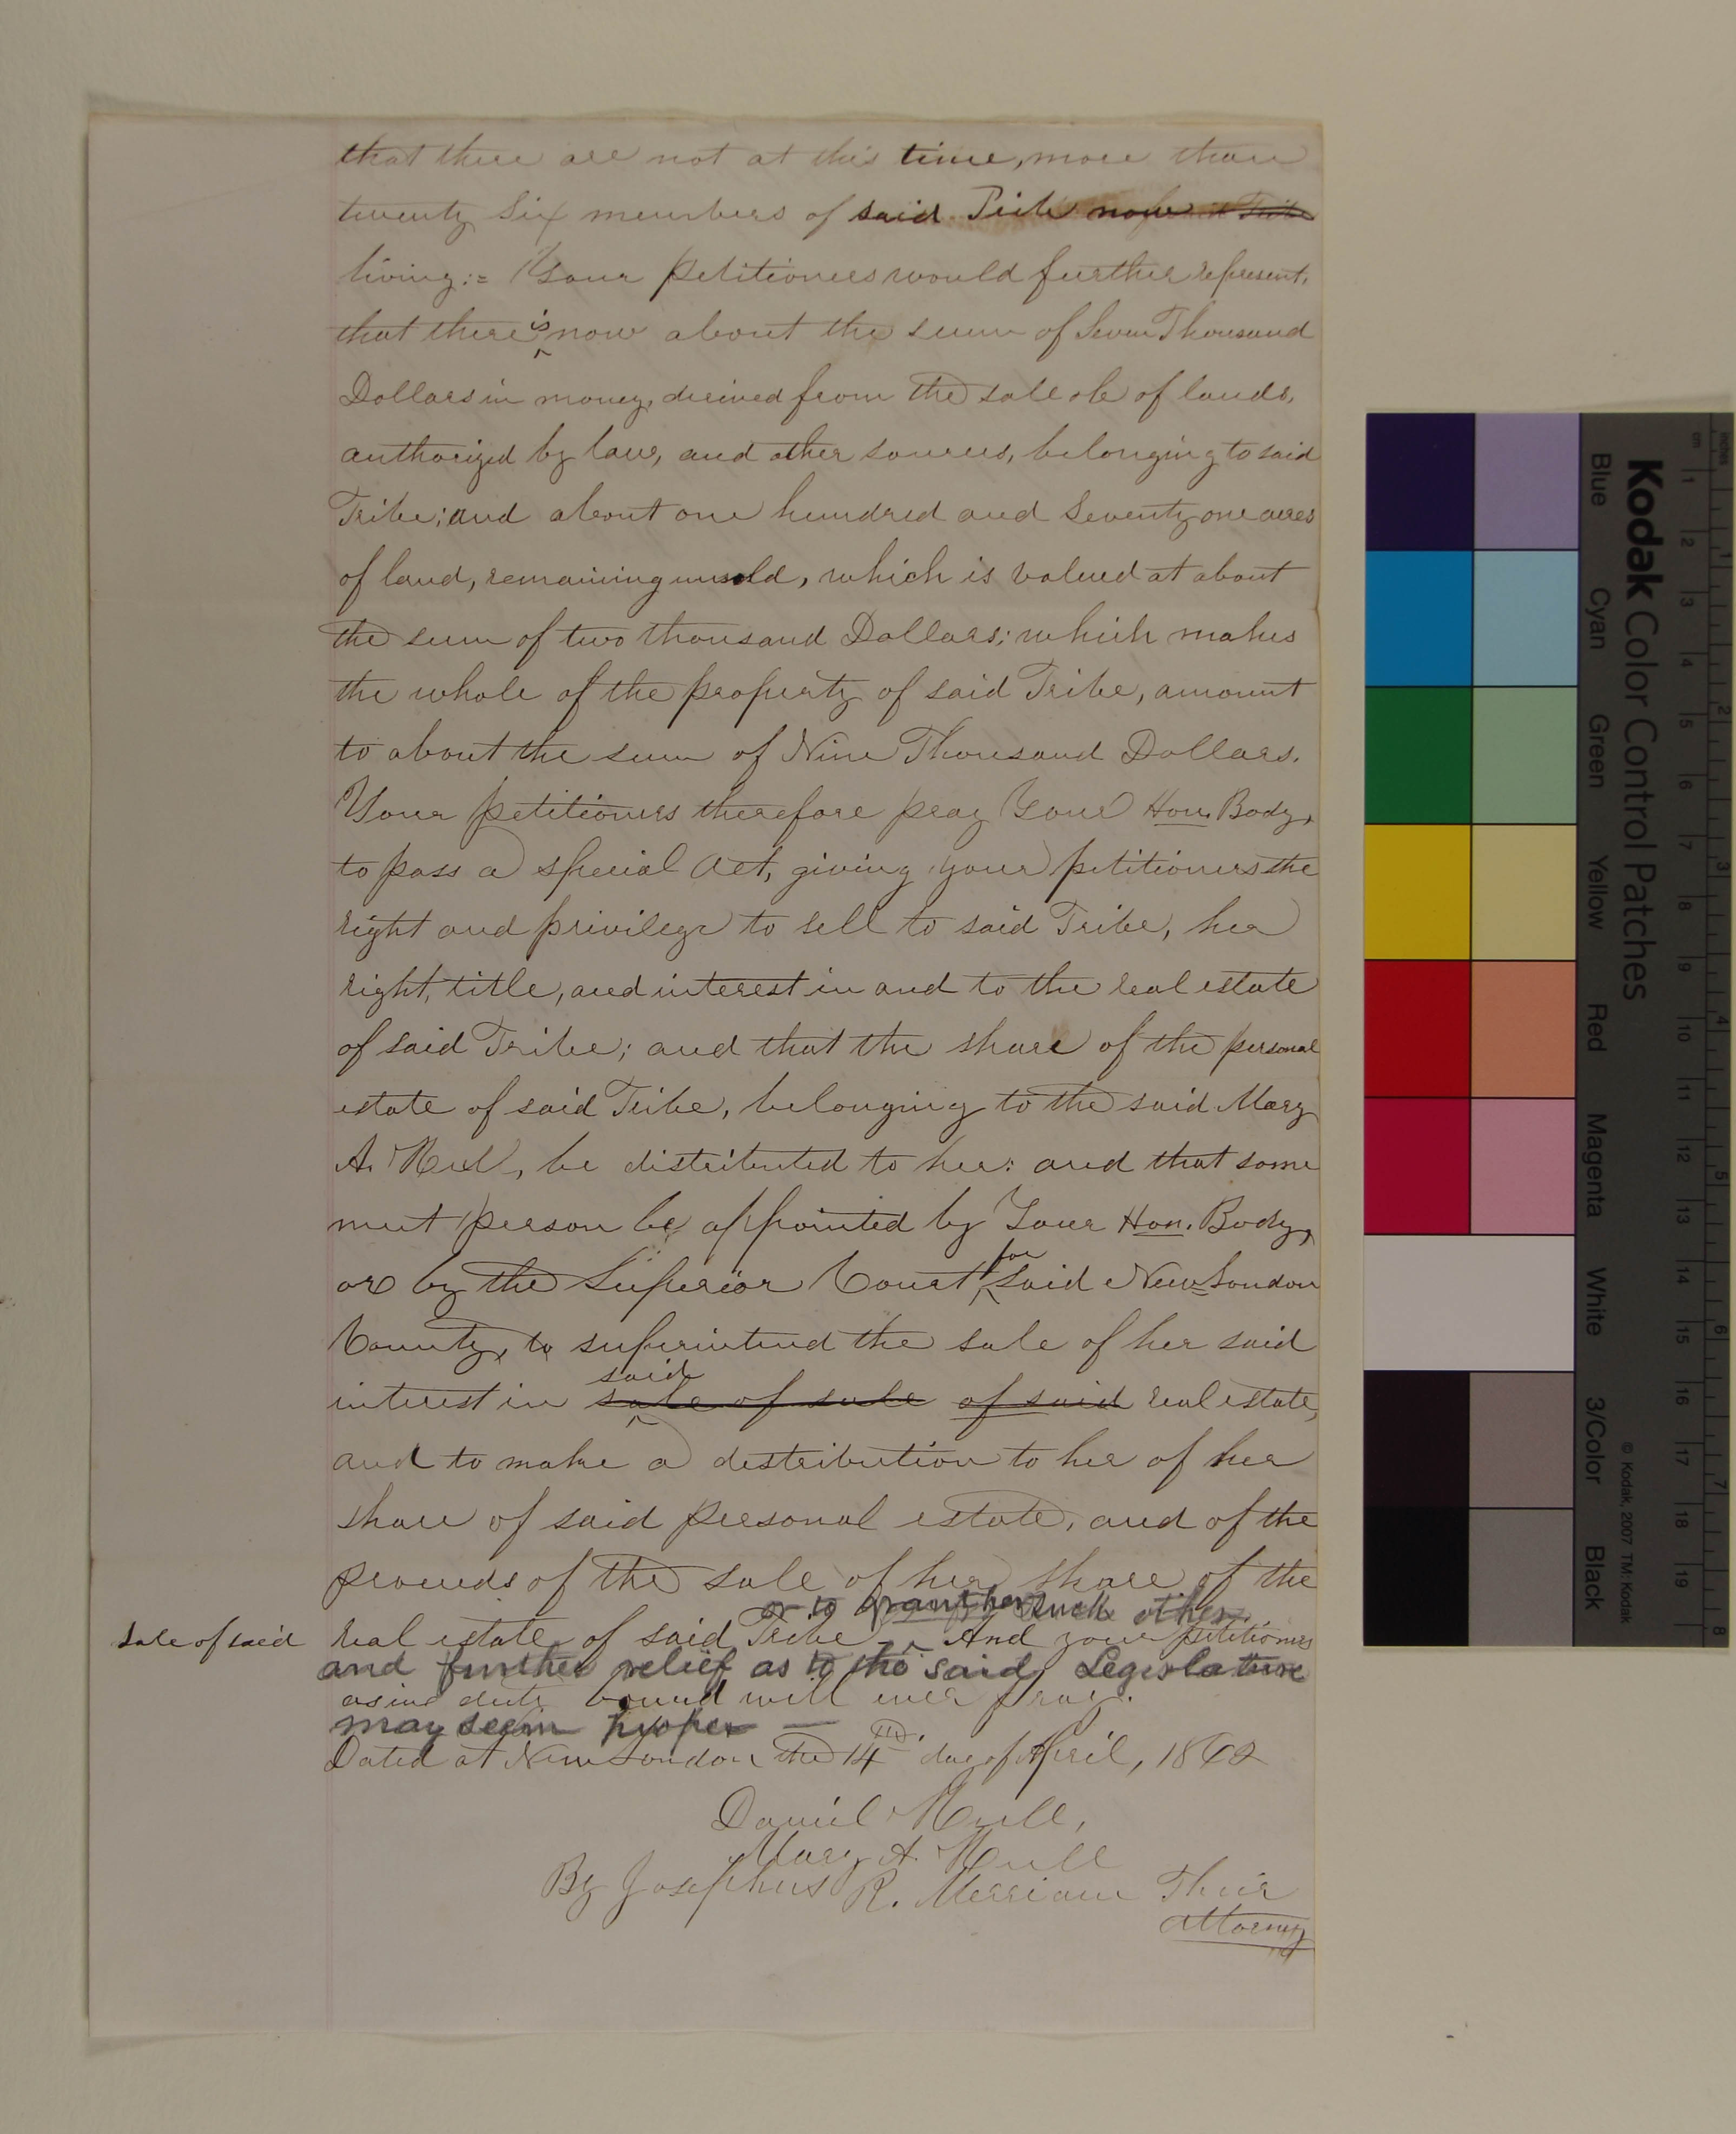 that there are not at this time, more than
twenty six members of said Tribe now
living:= Your petitioners would further represent,
that there is now about the sum of Seven Thousand
Dollars in money, derived from the sale of lands,
authorized by law, and other sources, belonging to said
Tribe; and about one hundred and Seventy one acres
of land, remaining unsold, which is valued at about
the sum of two thousand Dollars; which makes
the whole of the property of said Tribe, amount
to about the sum of Nine Thousand Dollars.
Your petitioners therefore pray Your Hon. Body,
to pass a special Act, giving your petitioners the
right and privilege to sell to said Tribe, her
right, title, and interest in and to the real estate
of said Tribe; and that the share of the personal
estate of said Tribe, belonging to the said Mary
A. , be distributed to her: and that some
meet person be appointed by Your Hon. Body,
or by the Superior Court for said New London
County, to superintend the sale of her said
interest in said sale of sale of said real estate,
and to make a distribution to her of her
share of said personal estate, and of the
proceeds of the sale of her share of the
or to grant her such other
sale of said real estate of said Tribe - And your petitioners
and further relief as to the said Legislature
as in duty bound will ever pray.
may seem proper —
Dated at New London the 14th day of April, 1862
Daniel
Mary A.
By Josephus R. Merriam Their
attorney
Kodak Color Control Patches
Blue Cyan Green Yellow Red Magenta White 3/Color Black
© Kodak, 2007 TM: Kodak
inches 1 2 3 4 5 6 7 8
cm 1 2 3 4 5 6 7 8 9 10 11 12 13 14 15 16 17 18 19